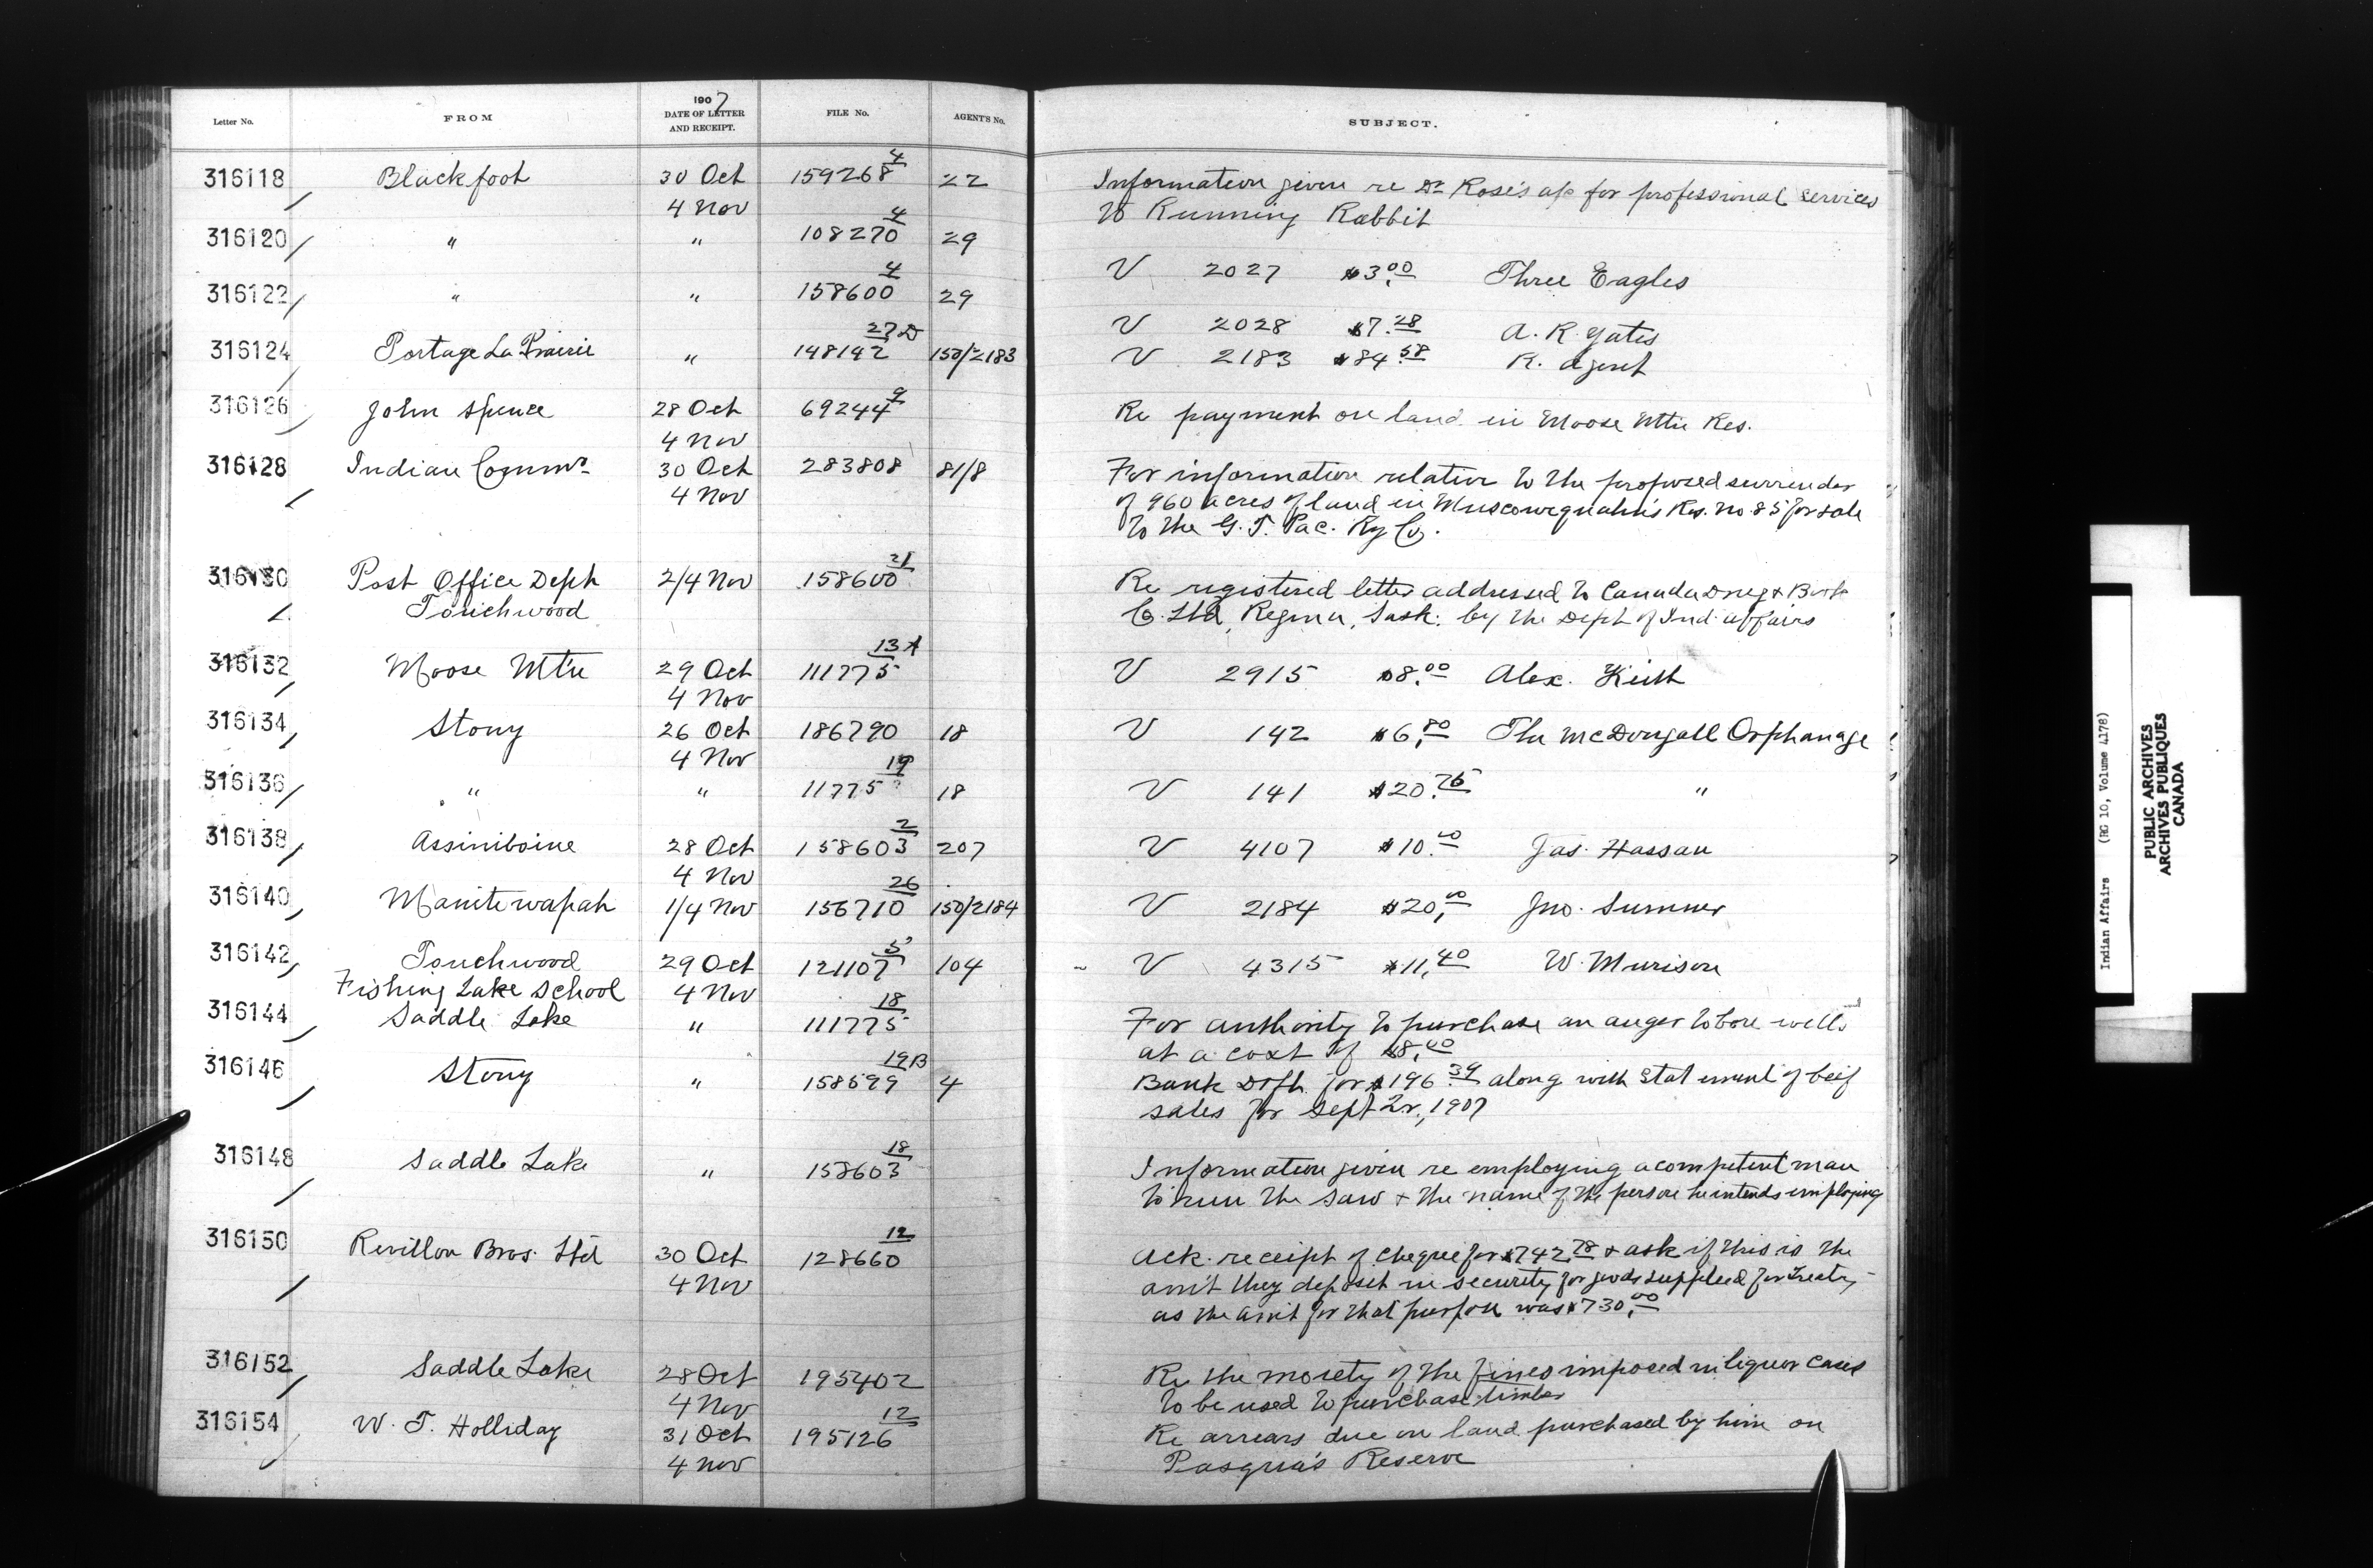 1907
Letter No. FROM DATE OF LETTER AND RECEIPT. FILE No. AGENT'S No. SUBJECT.
316118 Blackfoot 30 Oct 159268 4 22 Information given re Dr Rose's a/c for professional services
4 Nov to Running Rabbit
316120 " " 108270 4 29
V 2027 $3.00 Three Eagles
316122 " " 158600 4 29
V 2028 $7.28 A. R. Yates
316124 Portage La Prairie " 148142 27D 150/2183 V 2183 $84.58 R. Agent
316126 John Spence 28 Oct 69244 9 Re payment on land in Moose Mtn Res.
4 Nov
316128 Indian Commr 30 Oct 283808 81/8 For information relative to the proposed surrender
4 Nov of 960 acres of land in Muscowequahn's Res. No 85 for sale
to the G. T. Pac. Ry Co.
316130 Post Office Dept 2/4 Nov 158600 21 Re registered letter addressed to Canada Drug & Book
Touchwood Co. Ltd, Regina, Sask. by the Dept of Ind. Affairs
316132 Moose Mtn 29 Oct 111775 13A V 2915 $8.00 Alex. Keith
4 Nov
316134 Stony 26 Oct 186790 18 V 142 $6.80 The McDougall Orphanage
4 Nov
316136 " " 11775 19 18 V 141 $20.75 "
316138 Assiniboine 28 Oct 158603 2 207 V 4107 $10.00 Jas. Hassan
4 Nov
316140 Manitowapah 1/4 Nov 156710 26 150/2184 V 2184 $20.00 Jno. Sumner
316142 Touchwood 29 Oct 121107 5 104 V 4315 $11.40 W. Murison
Fishing Lake School 4 Nov
316144 Saddle Lake " 111775 18 For authority to purchase an auger to bore wells
at a cost of $8.00
316146 Stony " 158599 19B 4 Bank Dft. for $196.39 along with statement of beef
sales for Sept Qr., 1907
316148 Saddle Lake " 158603 18 Information given re employing a competent man
to run the saw & the name of the person he intends employing
316150 Revillon Bros. Ltd 30 Oct 128660 12 Ack. receipt of cheque for $742.78 & ask if this is the
4 Nov am't they deposit in security for goods supplied for Treaty
as the am't for that purpose was $730.00
316152 Saddle Lake 28 Oct 195402 Re the moiety of the fines imposed in liquor cases
4 Nov to be used to purchase timber
316154 W. T. Holliday 31 Oct 195126 12 Re arrears due on land purchased by him on
4 Nov Pasqua's Reserve
Indian Affairs (RG 10, Volume 4178)
PUBLIC ARCHIVES
ARCHIVES PUBLIQUES
CANADA